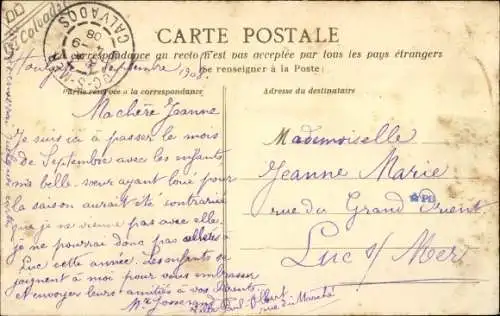 CARTE POSTALE
La correspondance au recto n'est pas acceptée par tous les pays étrangers
Se renseigner à la Poste
CALVADOS
08
Calvados
Septembre 1908
Partie réservée à la correspondance
Adresse du destinataire
Ma chère Jeanne
Je suis ici à passer le mois
de Septembre avec les enfants
ma belle-sœur ayant loué pour
la saison aurait été contrariée
que je ne vienne pas avec elle
je ne pourrai donc pas aller à
Luc cette année. Les enfants se
joignent à moi pour vous embrasser
et envoyer leurs amitiés à vos Parents.
Mademoiselle
Jeanne Marie
rue du Grand Orient
Luc s/ Mer
Villa Paul-Albert
rue du Marché